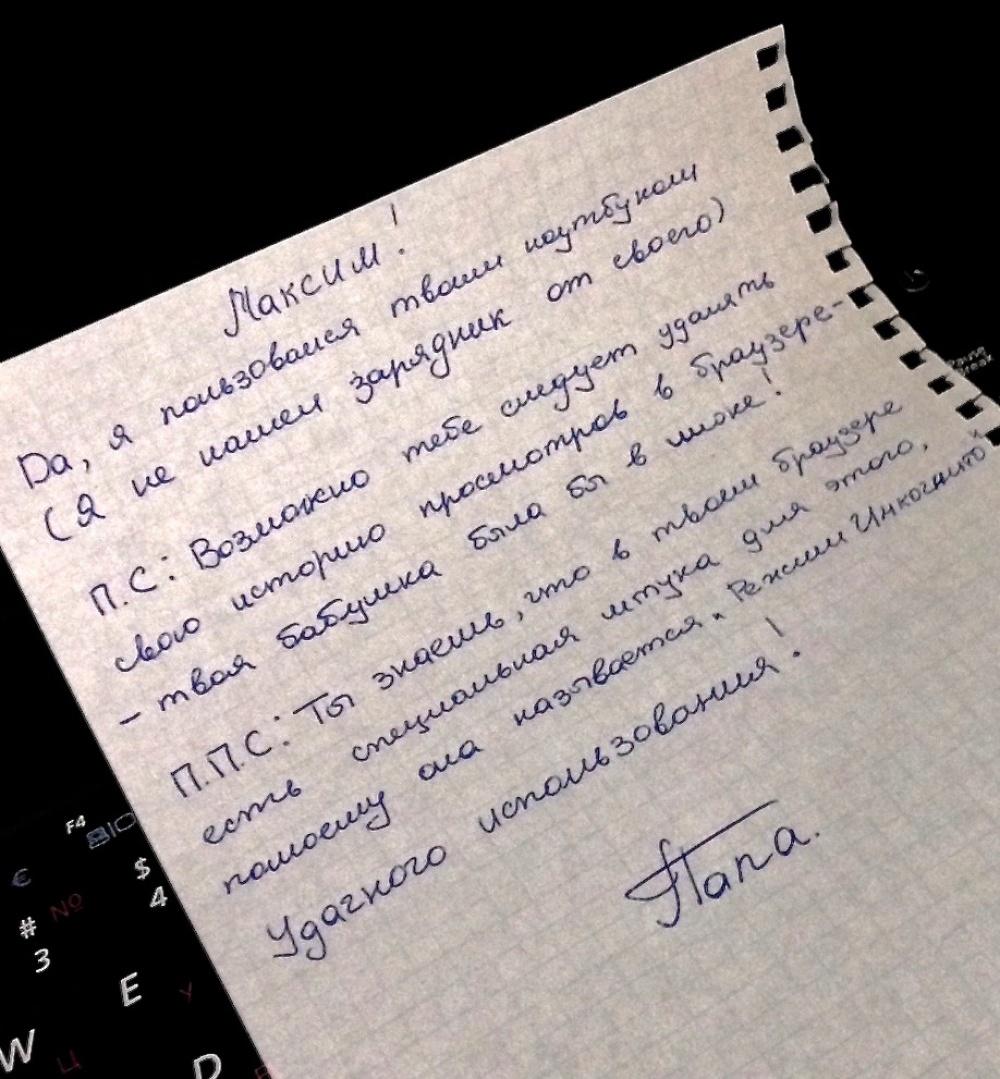 Максим!
Да, я пользовался твоим ноутбуком
(Я не нашел зарядник от своего)
П.С: Возможно тебе следует удалять
свою историю просмотров в браузере-
- твоя бабушка была бы в шоке!
П.П.С: Ты знаешь, что в твоем браузере
есть специальная штука для этого,
помоему она называется "Режим Инкогнито"
Удачного использования!
Папа.
Pause
Break
F4
€
$
# №
4
3
E У
W Ц
D